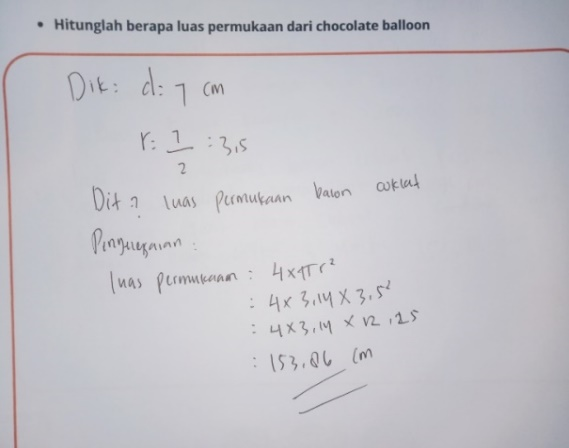 • Hitunglah berapa luas permukaan dari chocolate balloon
Dik: d: 7 cm
r: 7/2 : 3,5
Dit? luas permukaan balon coklat
Penyelesaian:
luas permukaan : 4×πr²
: 4× 3,14 × 3,5²
: 4×3,14 × 12,25
: 153,86 cm